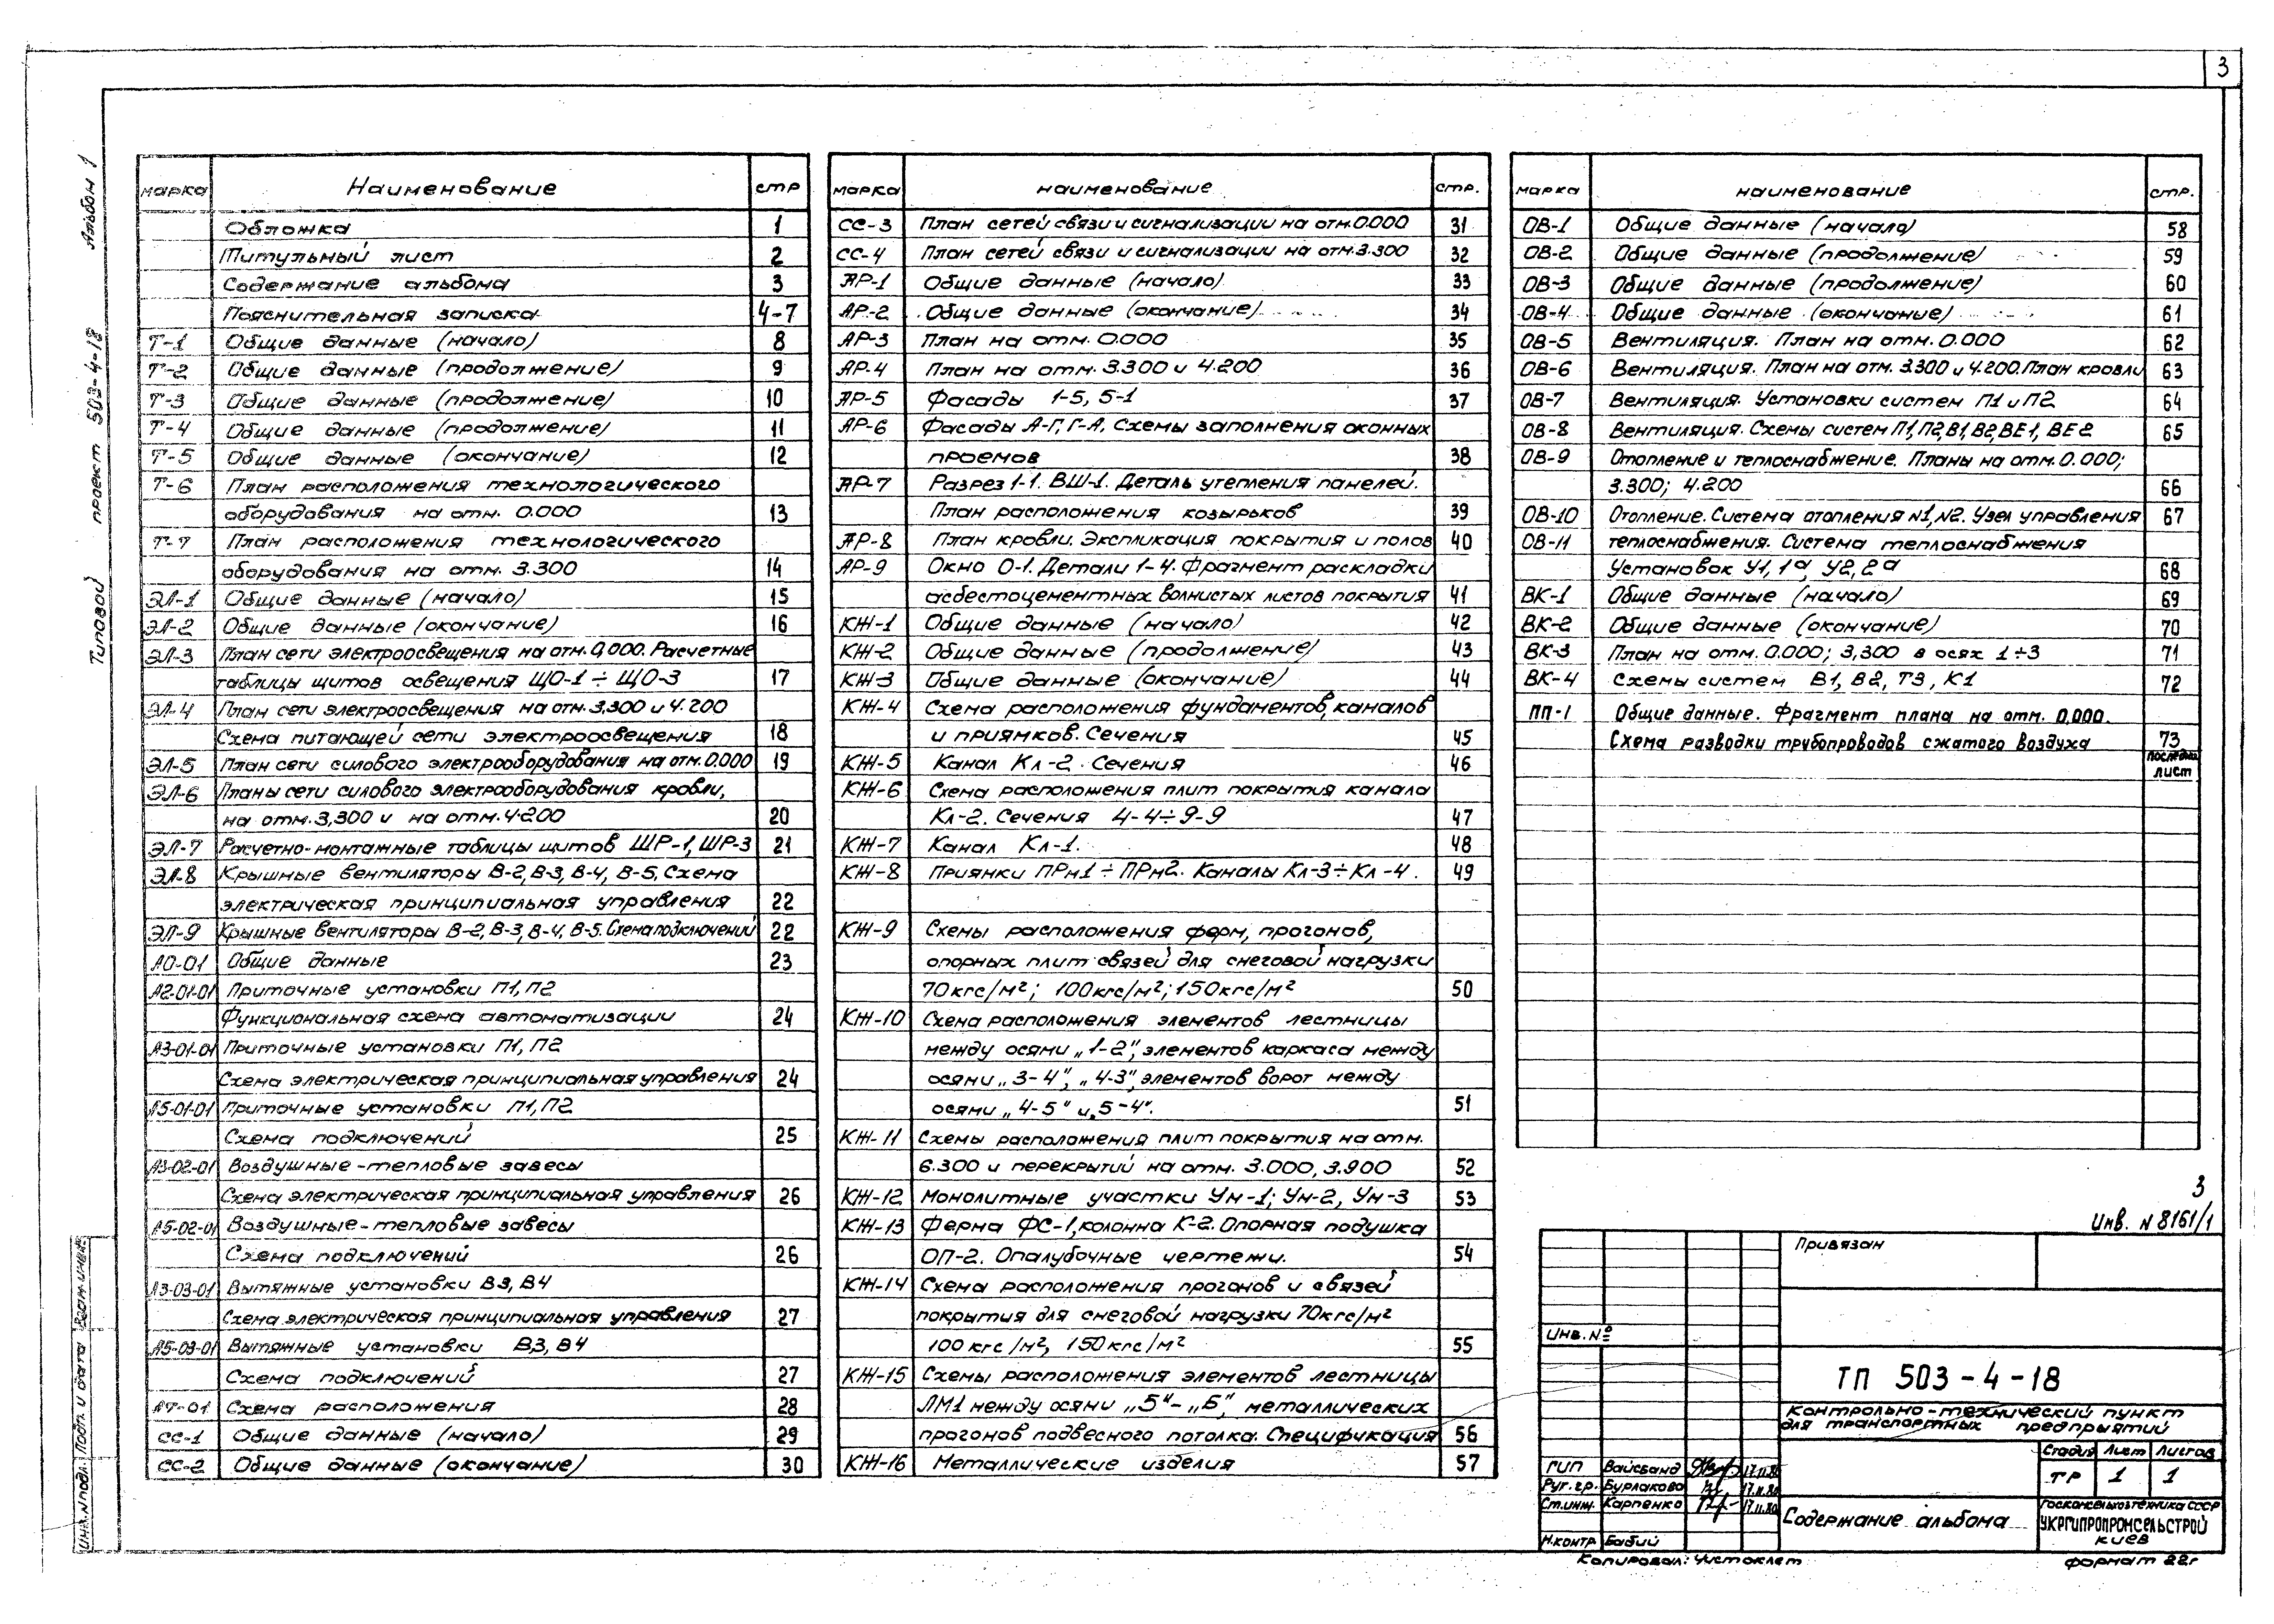 3
Типовой проект 503-4-18 Альбом 1
марка Наименование стр
Обложка 1
Титульный лист 2
Содержание альбома 3
Пояснительная записка 4-7
Т-1 Общие данные (начало) 8
Т-2 Общие данные (продолжение) 9
Т-3 Общие данные (продолжение) 10
Т-4 Общие данные (продолжение) 11
Т-5 Общие данные (окончание) 12
Т-6 План расположения технологического
оборудования на отм. 0.000 13
Т-7 План расположения технологического
оборудования на отм. 3.300 14
ЭЛ-1 Общие данные (начало) 15
ЭЛ-2 Общие данные (окончание) 16
ЭЛ-3 План сети электроосвещения на отм. 0,000. Расчетные
таблицы щитов освещения ЩО-1 ÷ ЩО-3 17
ЭЛ-4 План сети электроосвещения на отм. 3.300 и 4.200
Схема питающей сети электроосвещения 18
ЭЛ-5 План сети силового электрооборудования на отм. 0.000 19
ЭЛ-6 Планы сети силового электрооборудования кровли,
на отм. 3,300 и на отм. 4.200 20
ЭЛ-7 Расчетно-монтажные таблицы щитов ШР-1, ШР-3 21
ЭЛ-8 Крышные вентиляторы В-2, В-3, В-4, В-5. Схема
электрическая принципиальная управления 22
ЭЛ-9 Крышные вентиляторы В-2, В-3, В-4, В-5. Схема подключений 22
АО-01 Общие данные 23
А2-01-01 Приточные установки П1, П2
Функциональная схема автоматизации 24
А3-01-01 Приточные установки П1, П2
Схема электрическая принципиальная управления 24
А5-01-01 Приточные установки П1, П2
Схема подключений 25
А3-02-01 Воздушные-тепловые завесы
Схема электрическая принципиальная управления 26
А5-02-01 Воздушные-тепловые завесы
Схема подключений 26
А3-03-01 Вытяжные установки В3, В4
Схема электрическая принципиальная управления 27
А5-03-01 Вытяжные установки В3, В4
Схема подключений 27
А7-01 Схема расположения 28
СС-1 Общие данные (начало) 29
СС-2 Общие данные (окончание) 30
марка наименование стр.
СС-3 План сетей связи и сигнализации на отм. 0.000 31
СС-4 План сетей связи и сигнализации на отм. 3.300 32
АР-1 Общие данные (начало) 33
АР-2 Общие данные (окончание) 34
АР-3 План на отм. 0.000 35
АР-4 План на отм. 3.300 и 4.200 36
АР-5 Фасады 1-5, 5-1 37
АР-6 Фасады А-Г, Г-А, Схемы заполнения оконных
проемов 38
АР-7 Разрез 1-1. ВШ-1. Деталь утепления панелей.
План расположения козырьков 39
АР-8 План кровли. Экспликация покрытия и полов 40
АР-9 Окно О-1. Детали 1-4. Фрагмент раскладки
асбестоцементных волнистых листов покрытия 41
КЖ-1 Общие данные (начало) 42
КЖ-2 Общие данные (продолжение) 43
КЖ-3 Общие данные (окончание) 44
КЖ-4 Схема расположения фундаментов, каналов
и приямков. Сечения 45
КЖ-5 Канал Кл-2. Сечения 46
КЖ-6 Схема расположения плит покрытия канала
Кл-2. Сечения 4-4÷9-9 47
КЖ-7 Канал Кл-1. 48
КЖ-8 Приямки ПРм1 ÷ ПРм2. Каналы Кл-3÷Кл-4. 49
КЖ-9 Схемы расположения ферм, прогонов,
опорных плит связей для снеговой нагрузки
70кгс/м²; 100кгс/м²; 150кгс/м² 50
КЖ-10 Схема расположения элементов лестницы
между осями „1-2", элементов каркаса между
осями „3-4", „4-3", элементов ворот между
осями „4-5" и „5-4". 51
КЖ-11 Схемы расположения плит покрытия на отм.
6.300 и перекрытий на отм. 3.000, 3.900 52
КЖ-12 Монолитные участки Ум-1; Ум-2, Ум-3 53
КЖ-13 Ферма ФС-1, колонна К-2. Опорная подушка
ОП-2. Опалубочные чертежи. 54
КЖ-14 Схема расположения прогонов и связей
покрытия для снеговой нагрузки 70кгс/м²
100 кгс/м², 150кгс/м² 55
КЖ-15 Схемы расположения элементов лестницы
ЛМ1 между осями „5"-„Б", металлических
прогонов подвесного потолка. Спецификация 56
КЖ-16 Металлические изделия 57
марка наименование стр.
ОВ-1 Общие данные (начало) 58
ОВ-2 Общие данные (продолжение) 59
ОВ-3 Общие данные (продолжение) 60
ОВ-4 Общие данные (окончание) 61
ОВ-5 Вентиляция. План на отм. 0.000 62
ОВ-6 Вентиляция. План на отм. 3.300 и 4.200. План кровли 63
ОВ-7 Вентиляция. Установки систем П1 и П2 64
ОВ-8 Вентиляция. Схемы систем П1, П2, В1, В2, ВЕ1, ВЕ2 65
ОВ-9 Отопление и теплоснабжение. Планы на отм. 0.000;
3.300; 4.200 66
ОВ-10 Отопление. Система отопления N1, N2. Узел управления 67
ОВ-11 теплоснабжения. Система теплоснабжения
Установок У1, 1а, У2, 2а 68
ВК-1 Общие данные (начало) 69
ВК-2 Общие данные (окончание) 70
ВК-3 План на отм. 0.000; 3,300 в осях 1÷3 71
ВК-4 Схемы систем В1, В2, Т3, К1 72
ПП-1 Общие данные. Фрагмент плана на отм. 0,000.
Схема разводки трубопроводов сжатого воздуха 73
последний
лист
3
Инв. N 8161/1
Привязан
Инв. №
ТП 503-4-18
Контрольно-технический пункт
для транспортных предприятий
Стадия Лист Листов
ТР 1 1
ГИП Вайсбанд 17.11.80
Рук. гр. Бурлаково 17.11.80
Ст. инж. Карпенко 17.11.80
Н.контр Бабий
Содержание альбома
Госкомсельхозтехника СССР
УКРГИПРОПРОМСЕЛЬСТРОЙ
Киев
Копировал: Чистоклет
формат 22г
Инв.N подл. Подп. и дата Взам. инв.№